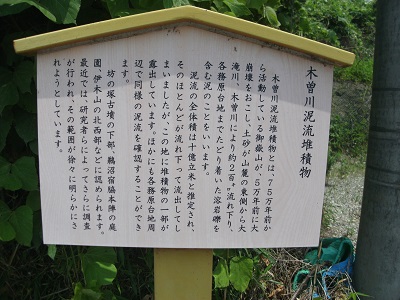 木曽川泥流堆積物
木曽川泥流堆積物とは、７５万年前か
ら活動している御嶽山が、５万年前に大
崩壊をおこし、土砂が山麓の東側から大
滝川、木曽川により約２百㌔流れ下り、
各務原台地までたどり着いた溶岩礫を
含む泥のことをいいます。
泥流の全体積は十億立米と推定され、
そのほとんどが流れ下って流出してし
まいましたが、この地に堆積物の一部が
露出しています。ほかにも各務原台地周
辺で同様の泥流を確認することができ
ます。
坊の塚古墳の下部、鵜沼宿脇本陣の庭
園、伊木山の北西部などに認められます。
最近では、研究者らによってさらに調査
が行われ、その範囲が徐々に明らかにさ
れようとしています。